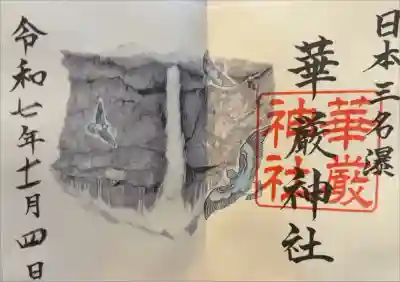 日本三名瀑
華厳神社
華厳
神社
令和七年十一月四日